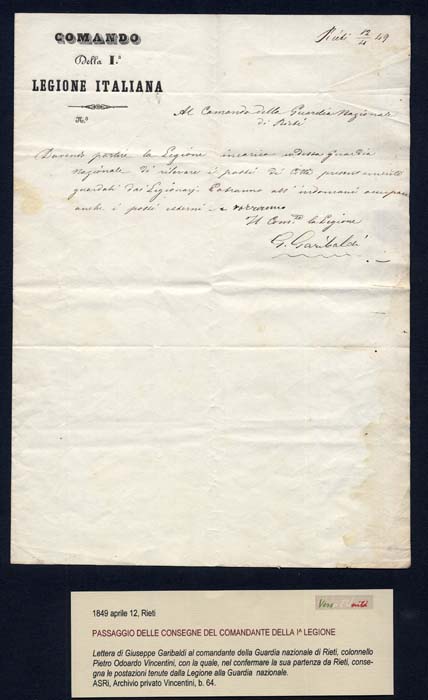 COMANDO
Della I.ª
LEGIONE ITALIANA
N.º
Rieti 12/4 49
Al Comando della Guardia Nazionale
di Rieti
Dovendo partire la Legione incarico codesta Guardia
Nazionale di rilevare i posti di Città presentemente
guardati dai Legionarj. Potranno all'indomani occupare
anche i posti esterni
Il Com.te la Legione
G. Garibaldi
Verso l'Unità
1849 aprile 12, Rieti
PASSAGGIO DELLE CONSEGNE DEL COMANDANTE DELLA Iª LEGIONE
Lettera di Giuseppe Garibaldi al comandante della Guardia nazionale di Rieti, colonnello
Pietro Odoardo Vincentini, con la quale, nel confermare la sua partenza da Rieti, conse-
gna le postazioni tenute dalla Legione alla Guardia nazionale.
ASRi, Archivio privato Vincentini, b. 64.